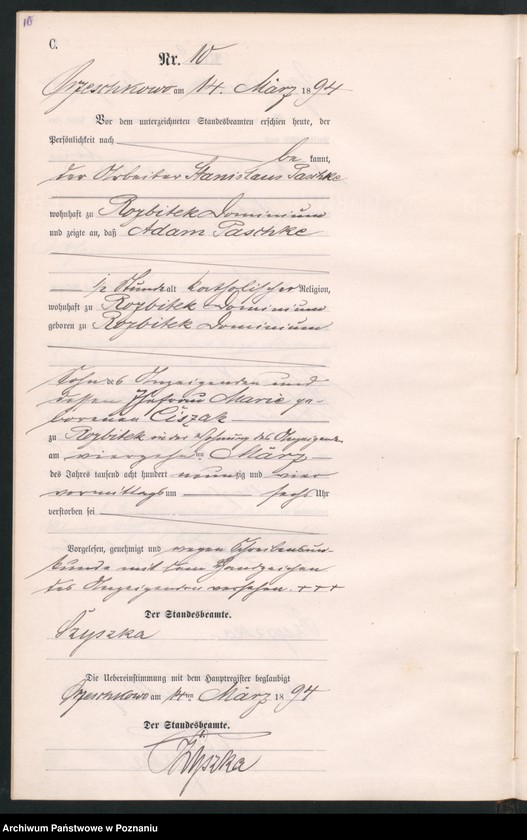 10
C.
Nr. 10
Orzeschkowo am 14. März 1894
Vor dem unterzeichneten Standesbeamten erschien heute, der
Persönlichkeit nach
be kannt,
der Arbeiter Stanislaus Paschke
wohnhaft zu Rozbitek Dominium
und zeigte an, daß Adam Paschke
½ Stunde alt katholischer Religion,
wohnhaft zu Rozbitek Dominium
geboren zu Rozbitek Dominium
Sohn des Anzeigenden und
dessen Ehefrau Marie ge-
borenen Ciszak
zu Rozbitek in der Wohnung des Anzeigenden
am vierzehnten März
des Jahres tausend acht hundert neunzig und vier
vormittags um sechs Uhr
verstorben sei
Vorgelesen, genehmigt und wegen Schreibensun-
kunde mit dem Handzeichen
des Anzeigenden versehen. +++
Der Standesbeamte.
Szyszka
Die Uebereinstimmung mit dem Hauptregister beglaubigt
Orzeschkowo am 14ten März 1894
Der Standesbeamte.
Szyszka
Archiwum Państwowe w Poznaniu